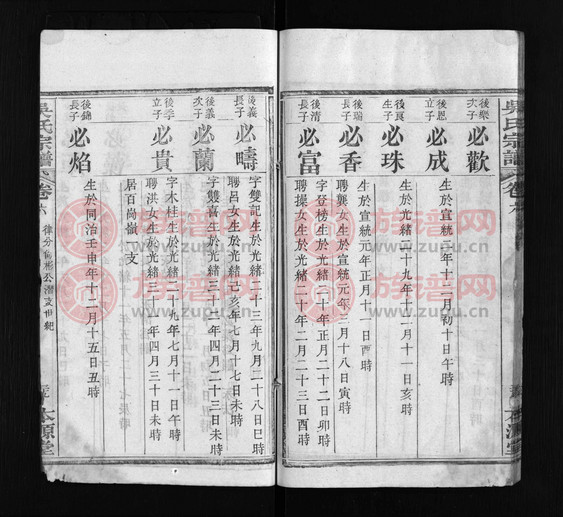 後樂次子
必歡
生於宣統 年十二月初十日午時
後恩立子
必成
生於光緒二十九年十二月十一日亥時
後良生子
必珠
生於宣統元年正月十 日酉時
後瑞長子
必香
聘龔女生於宣統元年三月十八日寅時
後清長子
必富
字登榜生於光緒三十 年正月二十二日卯時
聘操女生於光緒二十 年二月二十三日酉時
後義長子
必疇
字雙記生於光緒二十三年九月二十八日巳時
聘呂女生於光緒己亥年七月十七日未時
後義次子
必蘭
字雙喜生於光緒三十 年四月二十三日未時
後季立子
必貴
字木柱生於光緒二十九年七月十一日午時
聘洪女生於光緒三十 年四月三十日未時
居百尚嶺 支
後錦長子
必焰
生於同治壬申年十二月十五日丑時
吳氏宗譜 卷六
本源堂
族普网
www.zupu.cn
族普网
www.zupu.cn
族普网
www.zupu.cn
族普网
www.zupu.cn